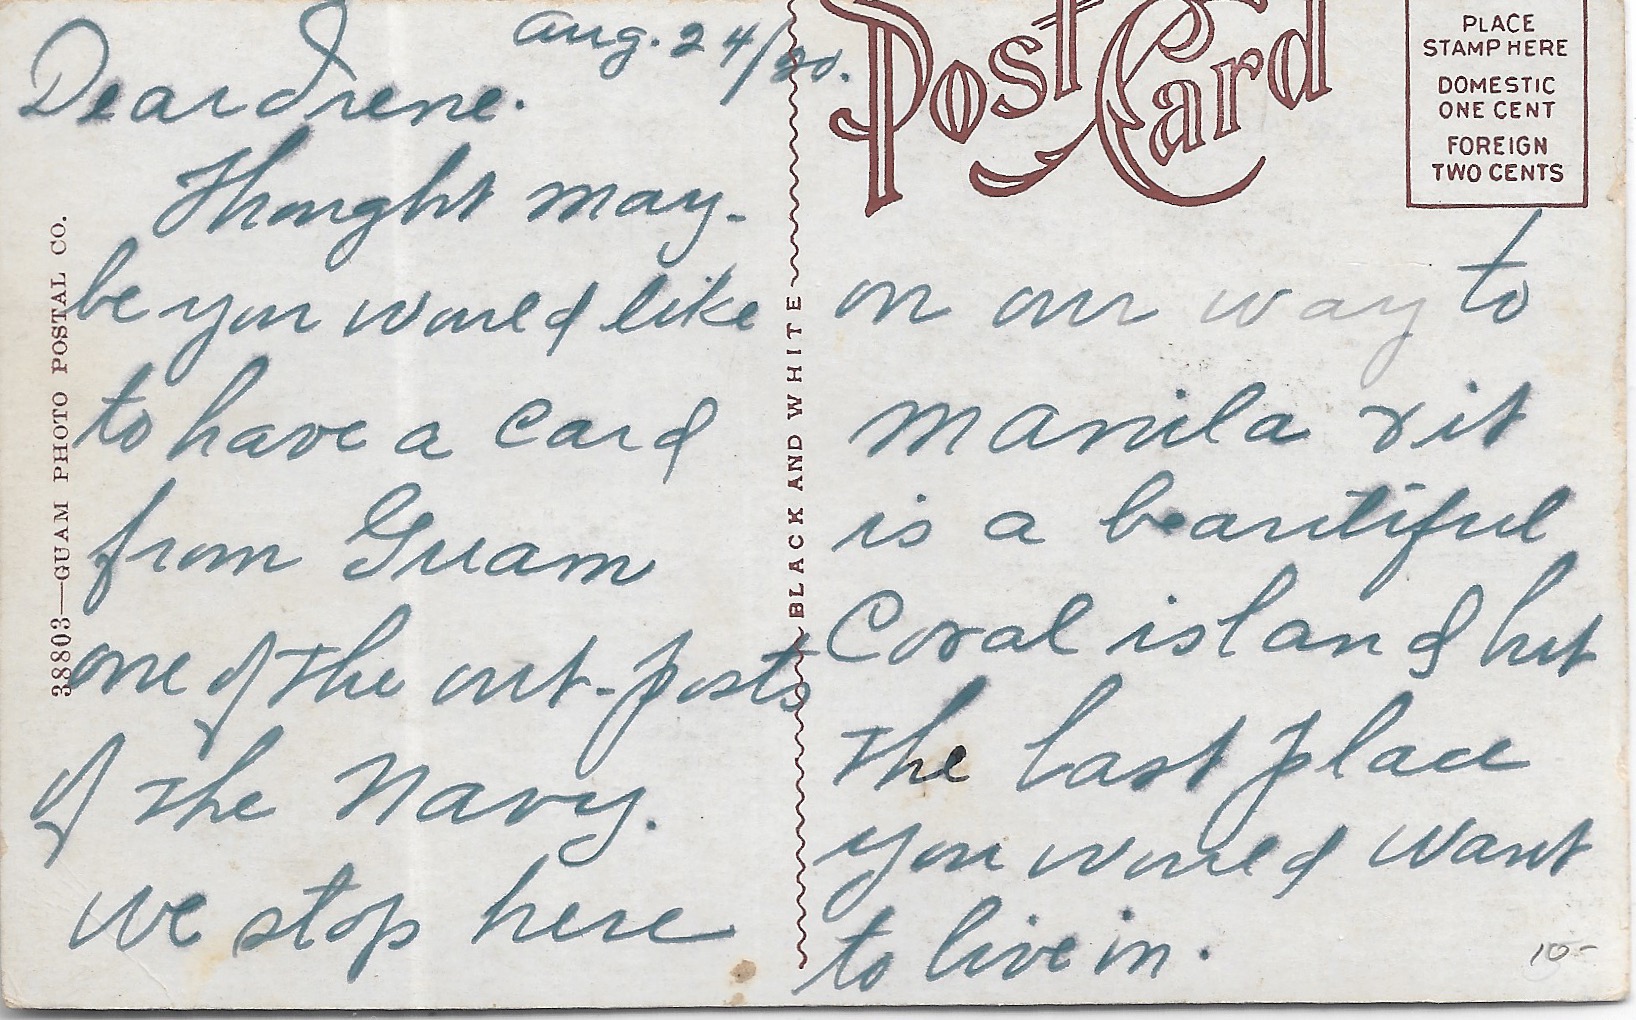 Aug. 24/20.
Dear Irene.
Thought may-
be you would like
to have a card
from Guam
one of the out-posts
of the Navy.
We stop here
on our way to
Manila & it
is a beautiful
Coral island but
the last place
you would want
to live in.
Post Card
PLACE
STAMP HERE
DOMESTIC
ONE CENT
FOREIGN
TWO CENTS
38803—GUAM PHOTO POSTAL CO.
BLACK AND WHITE
10-